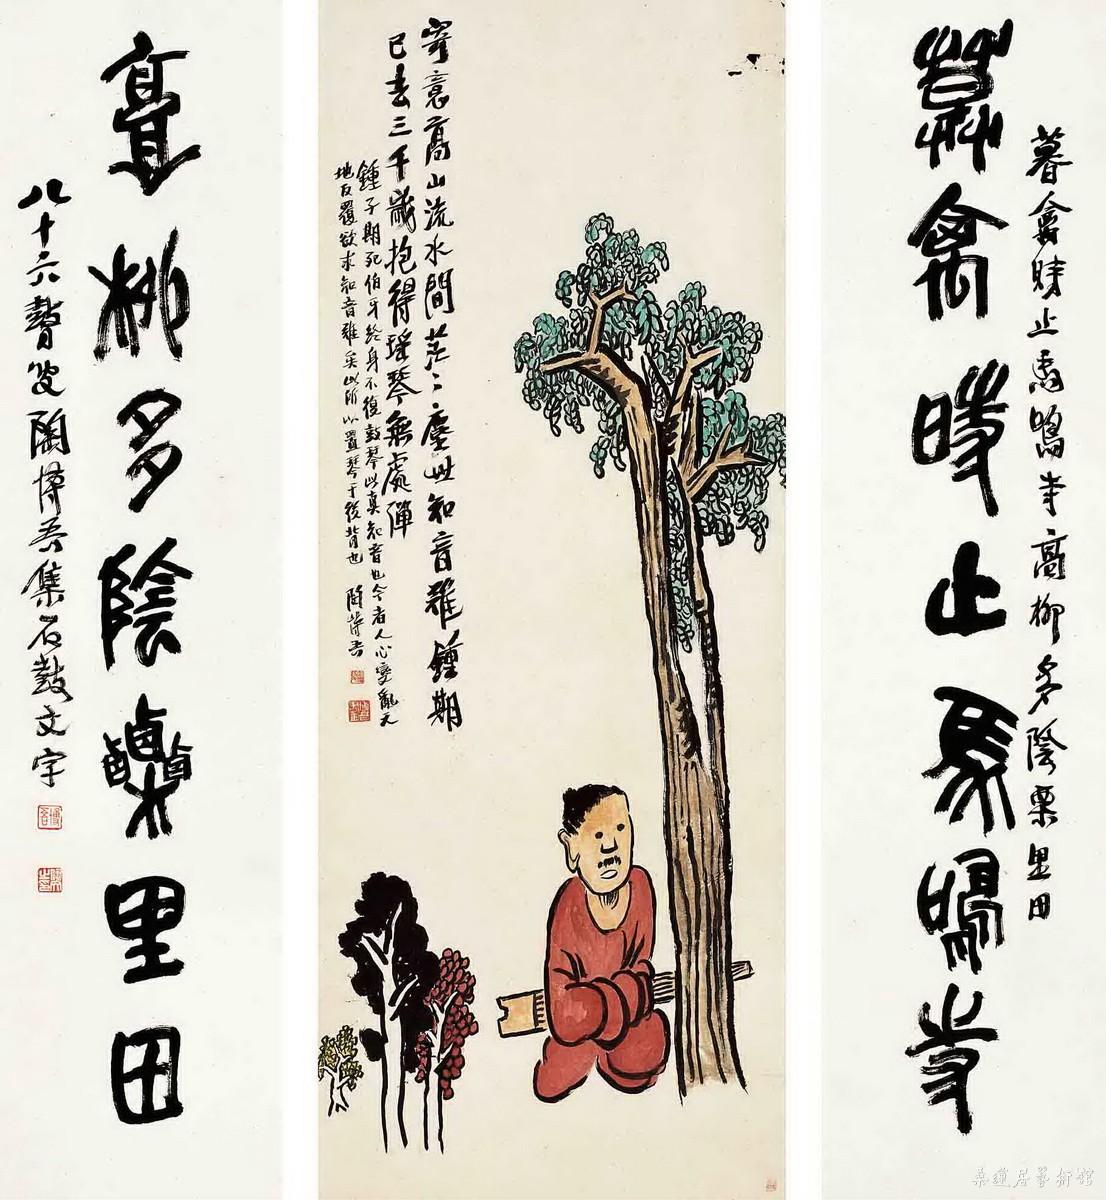 暮禽時止馬鳴寺高柳多陰栗里田
暮禽時止馬鳴寺
寄意高山流水間茫〻塵世知音難鍾期
已去三千歲抱得瑤琴無處彈
鍾子期死伯牙終身不復鼓琴此真知音也今者人心變亂天
地反覆欲求知音難矣此所以置琴于後背也 陶博吾
高柳多陰栗里田
八十六瞽叟陶博吾集石鼓文字
桑蓮居藝術館